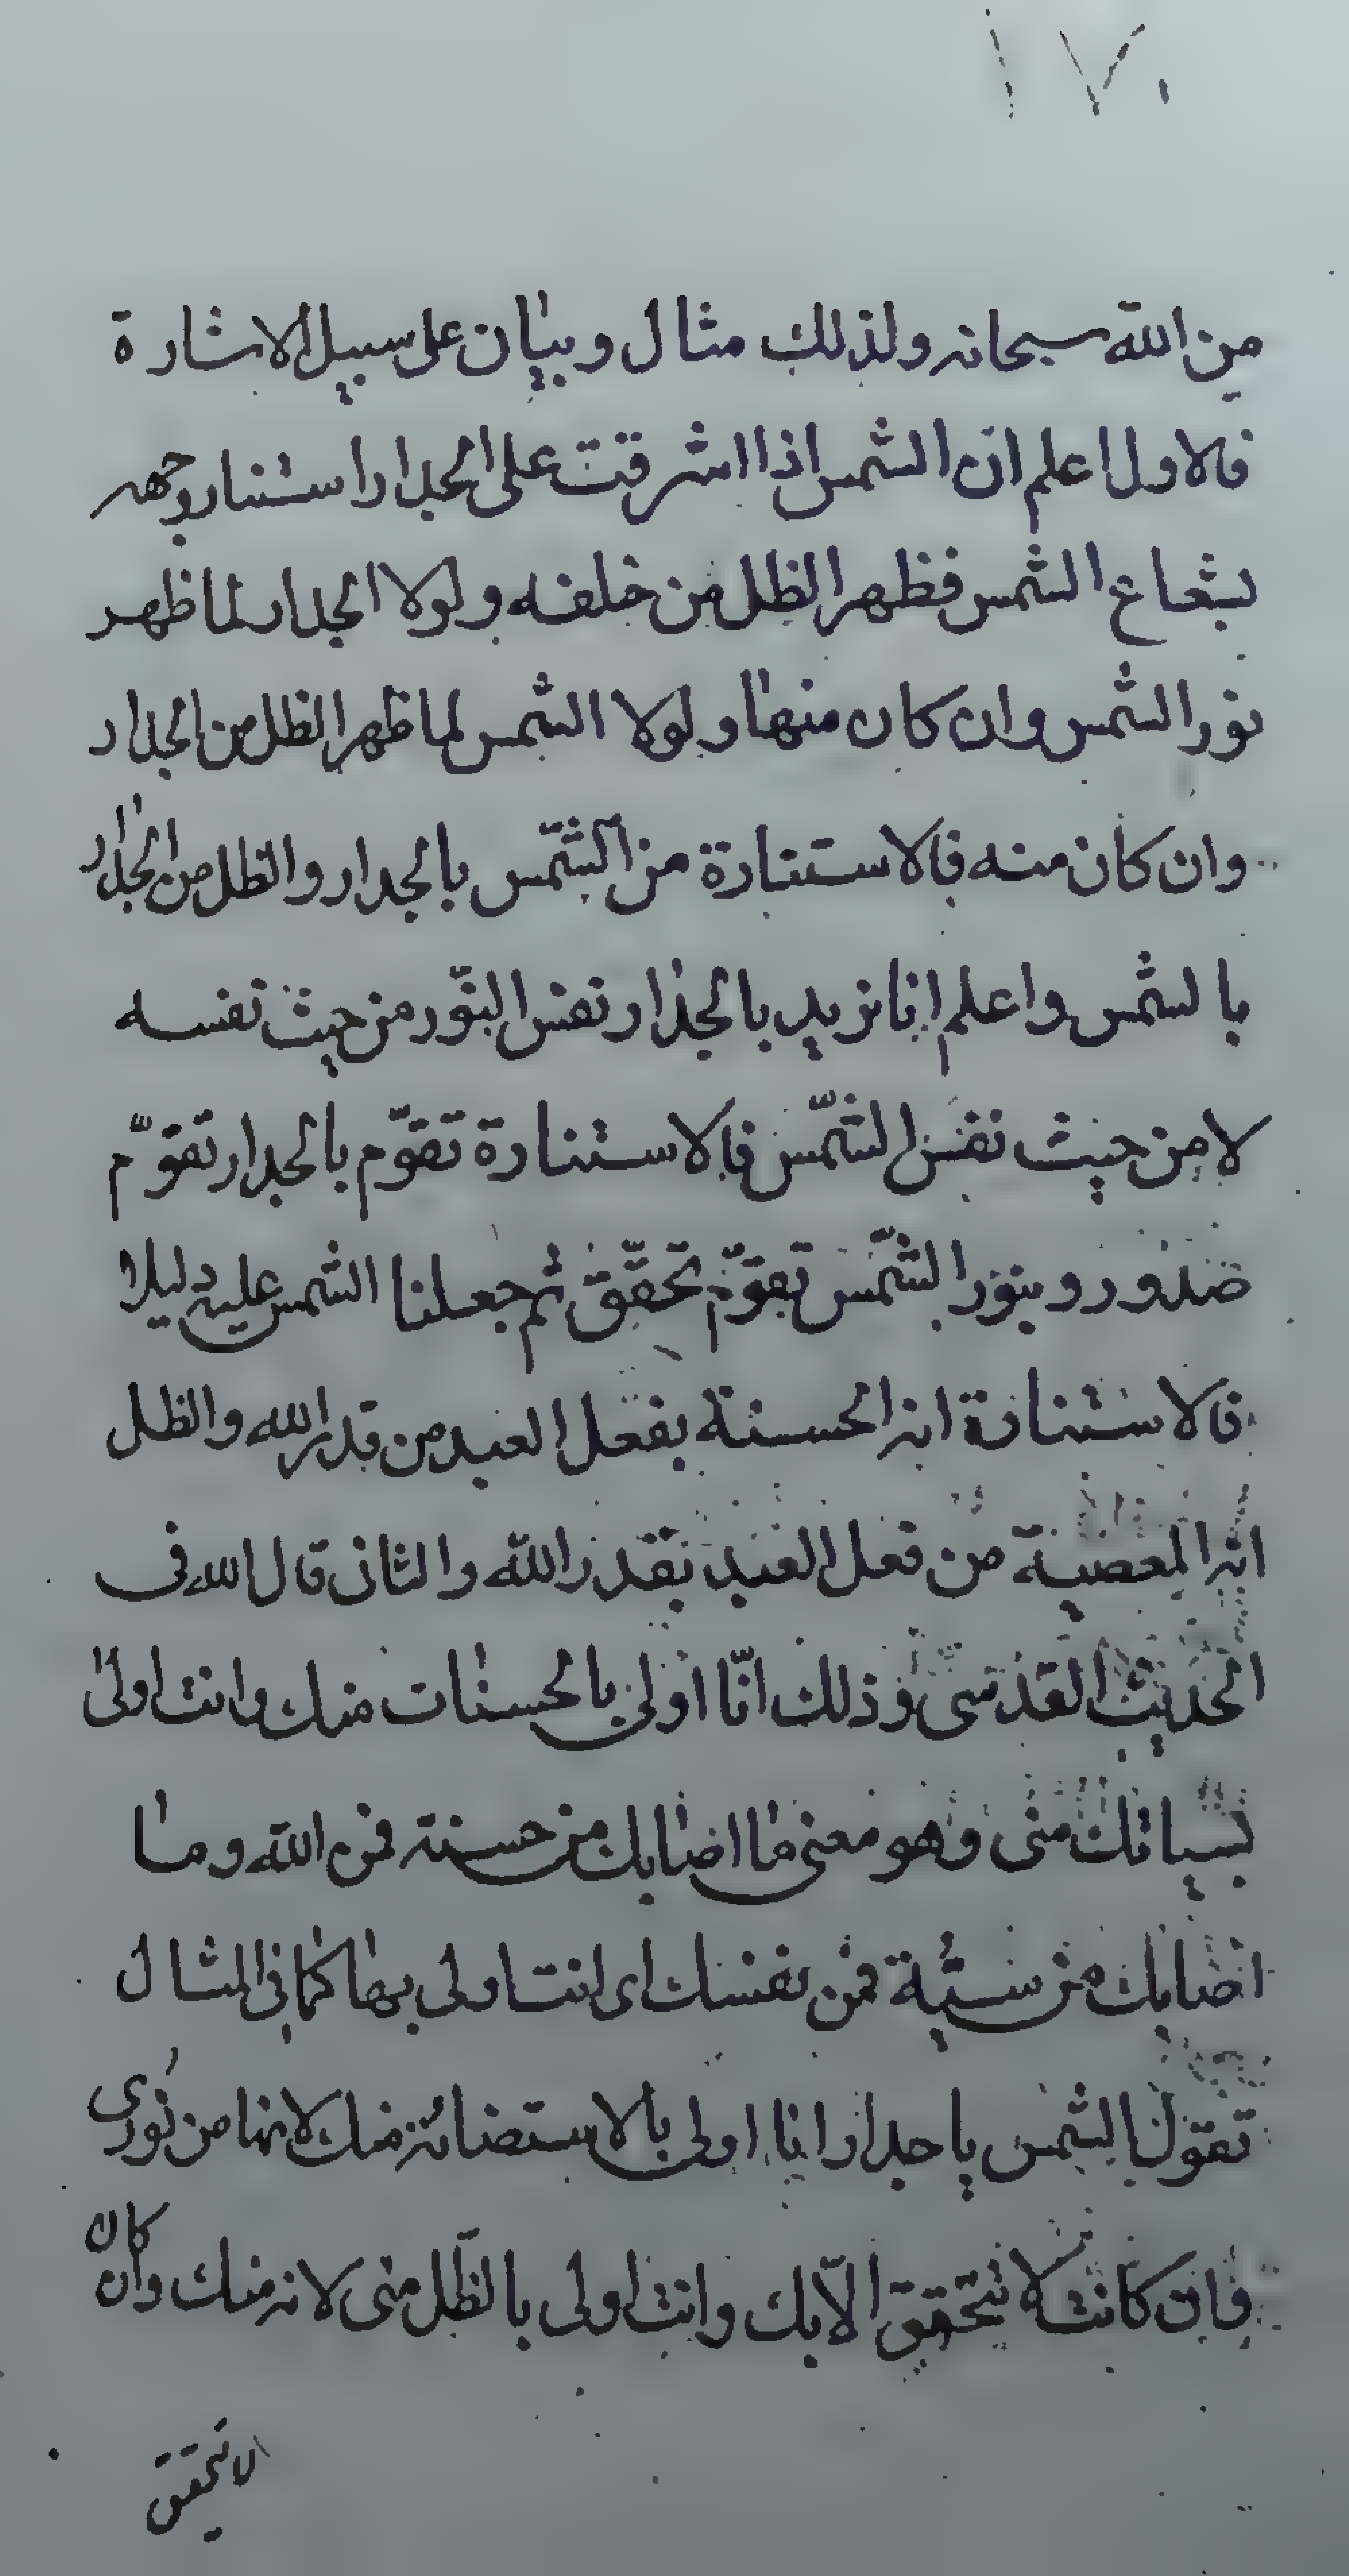 ١٧٠
من الله سبحانه ولذلك مثال وبيان على سبيل الاشارة
فالاول اعلم ان الشمس اذا اشرقت على الجدار استنار وجهه
بشعاع الشمس فظهر الظل من خلفه ولولا الجدار لما ظهر
نور الشمس وان كان منها ولولا الشمس لما ظهر الظل من الجدار
وان كان منه فالاستنارة من الشمس بالجدار والظل من الجدار
بالشمس واعلم انا نريد بالجدار نفس النور من حيث نفسه
لا من حيث نفس الشمس فالاستنارة تقوّم بالجدار تقوّم
صدور وبنور الشمس تقوّم تحقّق ثم جعلنا الشمس عليه دليلا
فالاستنارة اثر الحسنة بفعل العبد من قدر الله والظل
اثر المعصية من فعل العبد بقدر الله والثانى قال الله فى
الحديث القدسى وذلك انّا اولى بالحسنات منك وانت اولى
بسياتك منى وهو معنى ما اصابك من حسنة فمن الله وما
اصابك من سيئة فمن نفسك اى انت اولى بها كما فى المثال
تقول الشمس يا جدار انا اولى بالاستضائة منك لانها من نورى
فان كانت لا تتحقق الّا بك وانت اولى بالظل منى لانه منك وان كان
لا تتحقق